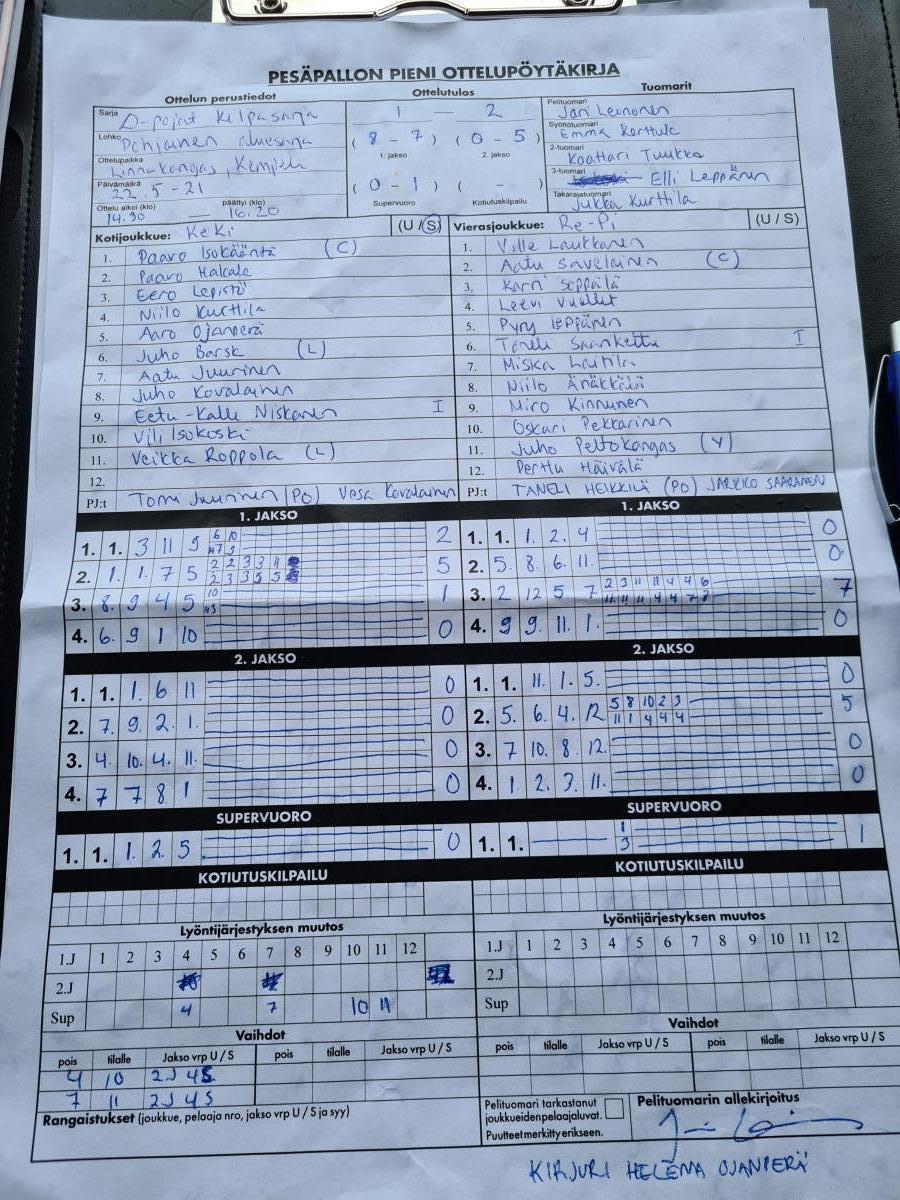 PESÄPALLON PIENI OTTELUPÖYTÄKIRJA
Ottelun perustiedot
Sarja D-pojat Kilpasarja
Lohko Pohjoinen aluesarja
Ottelupaikka Linnakangas, Kempele
Päivämäärä 22.5-21
Ottelu alkoi (klo) päättyi (klo)
14.30 — 16.20
Ottelutulos
1 — 2
(8-7) (0-5)
1. jakso 2. jakso
(0-1) ( - )
Supervuoro Kotiutuskilpailu
Tuomarit
Pelituomari Jari Leinonen
Syöttötuomari Emma Korttula
2-tuomari Koattari Tuukka
3-tuomari Elli Leppänen
Takarajatuomari Jukka Kurttila
Kotijoukkue: KeKi (U / S)
1. Paavo Isokääntä (C)
2. Paavo Hakala
3. Eero Lepistö
4. Niilo Kurttila
5. Aaro Ojanperä
6. Juho Barsk (L)
7. Aatu Juurinen
8. Juho Kovalainen
9. Eetu-Kalle Niskanen I
10. Vili Isokoski
11. Veikka Roppola (L)
12.
PJ:t Tomi Juurinen (PO) Vesa Kovalainen
Vierasjoukkue: Re-Pi (U / S)
1. Ville Laukkanen
2. Aatu Savelainen (C)
3. Karri Seppälä
4. Leevi
5. Pyry Leppänen
6. Taneli I
7. Miska Laitila
8. Niilo Änäkkälä
9. Miro Kinnunen
10. Oskari Pekkarinen
11. Juho Peltokangas (V)
12. Perttu Häivälä
PJ:t TANELI HEIKKILÄ (PO) JARKKO SAARANEN
1. JAKSO
1. 1. 3 11 9 6 10 2
47 9
2. 1. 1. 7 5 2 2 3 3 11 5
2 3 3 5 5
3. 8. 9 4 5 10 1
4. 6. 9 1 10 0
2. JAKSO
1. 1. 1. 6 11 0
2. 7. 9. 2. 1. 0
3. 4. 10. 4. 11. 0
4. 7 7 8 1 0
SUPERVUORO
1. 1. 1. 2. 5 0
KOTIUTUSKILPAILU
1. JAKSO
1. 1. 1. 2. 4 0
2. 5. 8. 6. 11. 0
3. 2 12 5 7 2 3 11 11 4 4 6 7
11 11 11 4 4 7 7
4. 9 9. 11. 1. 0
2. JAKSO
1. 1. 11. 1. 5. 0
2. 5. 6. 4. 12 5 8 10 2 3 5
11 1 4 4 4
3. 7 10. 8. 12. 0
4. 1. 2. 3. 11. 0
SUPERVUORO
1. 1. 1 1
3
KOTIUTUSKILPAILU
Lyöntijärjestyksen muutos
1.J 1 2 3 4 5 6 7 8 9 10 11 12
2.J
Sup 4 7 10 11
Vaihdot
pois tilalle Jakso vrp U / S pois tilalle Jakso vrp U / S
4 10 2J 4S
7 11 2J 4S
Lyöntijärjestyksen muutos
1.J 1 2 3 4 5 6 7 8 9 10 11 12
2.J
Sup
Vaihdot
pois tilalle Jakso vrp U / S pois tilalle Jakso vrp U / S
Rangaistukset (joukkue, pelaaja nro, jakso vrp U / S ja syy)
Pelituomari tarkastanut
joukkueidenpelaajaluvat.
Puutteet merkitty erikseen.
Pelituomarin allekirjoitus
KIRJURI HELENA OJANPERÄ